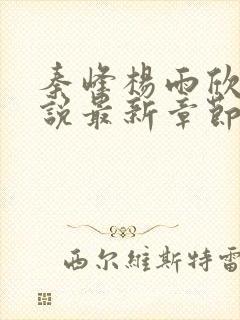 秦峰楊雨欣
說最新章節
西尔維斯特雷